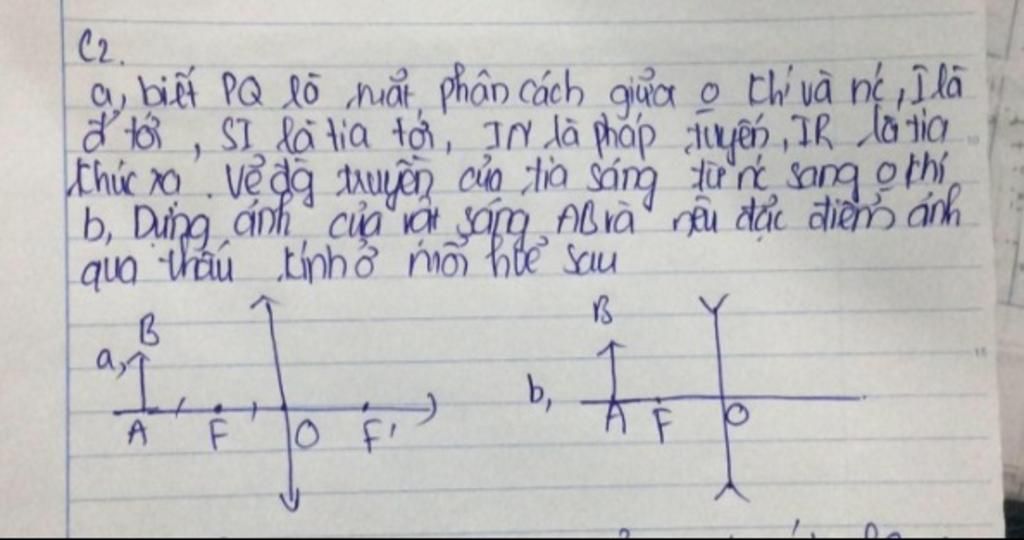 C2.
a, biết PQ là mặt phân cách giữa o khí và nc, I là
đ tới, SI là tia tới, IN là pháp tuyến, IR là tia
khúc xạ. Vẽ đg truyền của tia sáng từ nc sang o khí
b, Dựng ảnh của vật sáng AB và nêu đặc điểm ảnh
qua thấu kính ở mỗi hvẽ sau
a,
B
A F O F'
b,
B
A F O